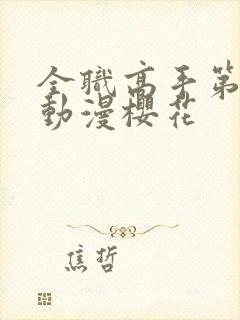 全職高手第
動漫櫻花
焦哲